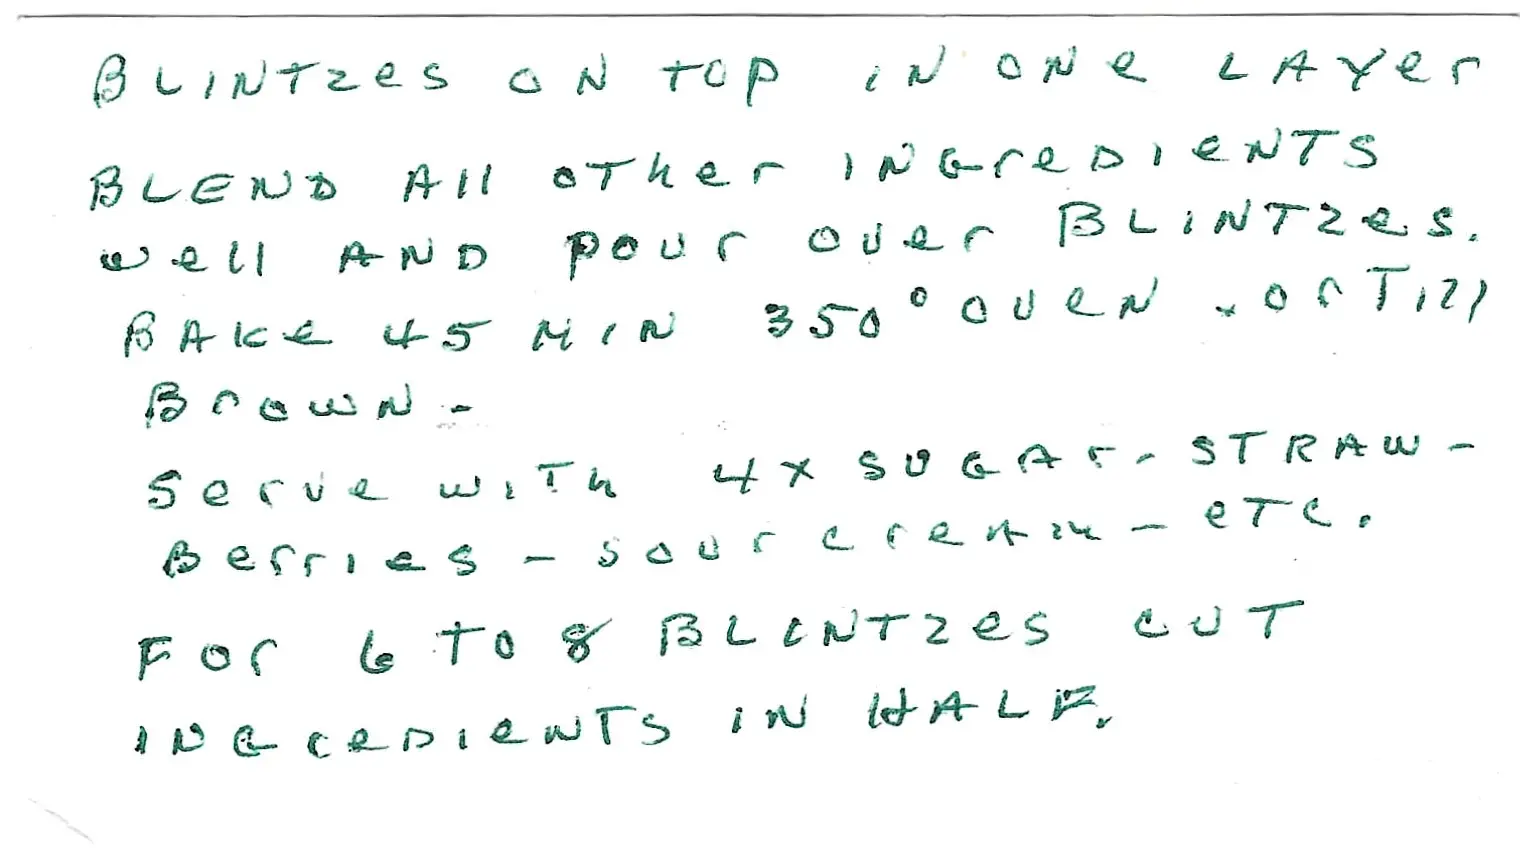 BLINTZes ON TOP iN ONe LAYer
BLEND All OTher INGreDIeNTS
well AND pour over BLiNTZes.
BAKe 45 MIN 350° OVeN . or Till
BrowN -
Serve wiTh 4X SUGAr - STRAW -
Berries - sour cream - eTc.
For 6 TO 8 BLINTZes CUT
INGreDIeNTS iN HALF.